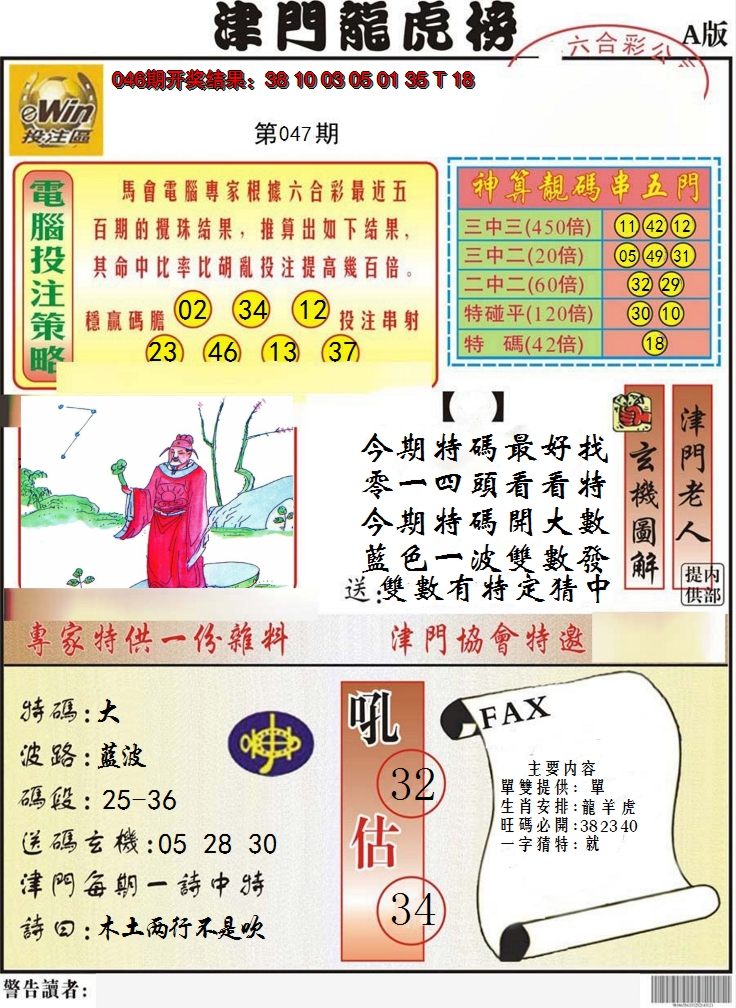 津門龍虎榜
六合彩公
A版
eWin
投注區
046期开奖结果：38 10 03 05 01 35 T 18
第047期
電腦投注策略
馬會電腦專家根據六合彩最近五
百期的攪珠结果，推算出如下结果，
其命中比率比胡亂投注提高幾百倍。
穩贏碼膽 02 34 12 投注串射
23 46 13 37
神算靚碼串五門
三中三(450倍) 11 42 12
三中二(20倍) 05 49 31
二中二(60倍) 32 29
特碰平(120倍) 30 10
特 碼(42倍) 18
【 】
今期特碼最好找
零一四頭看看特
今期特碼開大數
藍色一波雙數發
送:雙數有特定猜中
玄機圖解
津門老人
内部提供
專家特供一份雜料
津門協會特邀
特碼:大
波路:藍波
碼段:25-36
送碼玄機:05 28 30
津門每期一詩中特
詩曰:木土两行不是吹
吼 32
估 34
FAX
主要内容
單雙提供：單
生肖安排:龍羊虎
旺碼必開:38 23 40
一字猜特：就
警告讀者：